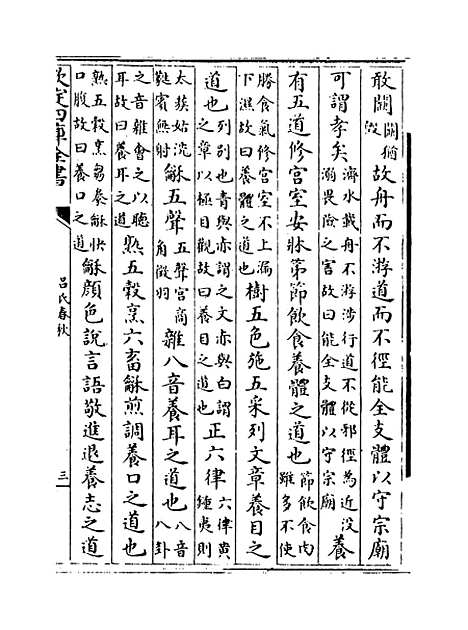 敢闕闕猶毀故舟而不游道而不徑能全支體以守宗廟
可謂孝矣濟水載舟不游涉行道不從邪徑為近沒溺畏險之害故曰能全支體以守宗廟養
有五道修宫室安牀第節飲食養體之道也節飲食肉雖多不使
勝食氣修宫室不上漏下濕故曰養體之道也樹五色施五采列文章養目之
道也列別也青與赤謂之文赤與白謂之章以極目觀故曰養目之道也正六律六律黄鍾夷則
太蔟姑洗蕤賓無射龢五聲五聲宫商角徵羽雜八音養耳之道也八音八卦
之音雜會之以聽耳故曰養耳之道熟五穀烹六畜龢煎調養口之道也
熟五穀烹芻豢龢快口腹故曰養口之道龢顔色說言語敬進退養志之道
欽定四庫全書
呂氏春秋
三